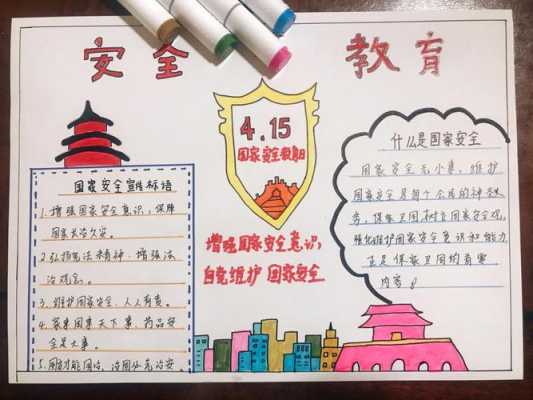 安全 教育
4.15
国家安全教育日
增强国家安全意识,
自觉维护 国家安全
国家安全宣传标语
1.增强国家安全意识,保障
国家长治久安。
2.弘扬宪法精神,增强法
治观念。
3.维护国家安全,人人有责。
4.家事国事天下事,药品安
全是大事。
什么是国家安全
国家安全无小事,维护
国家安全是每个公民的神圣职
责,保家卫国树立国家安全观,
强化维护国家安全意识和能力
正是保家卫国的重要
内容。